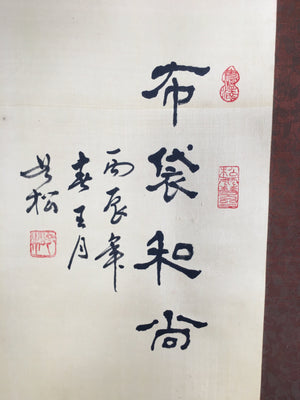 布袋和尚
丙辰年
春王月
松